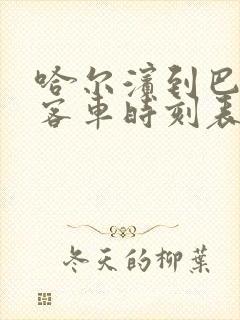 哈尔滨到巴
客车时刻表
冬天的柳葉